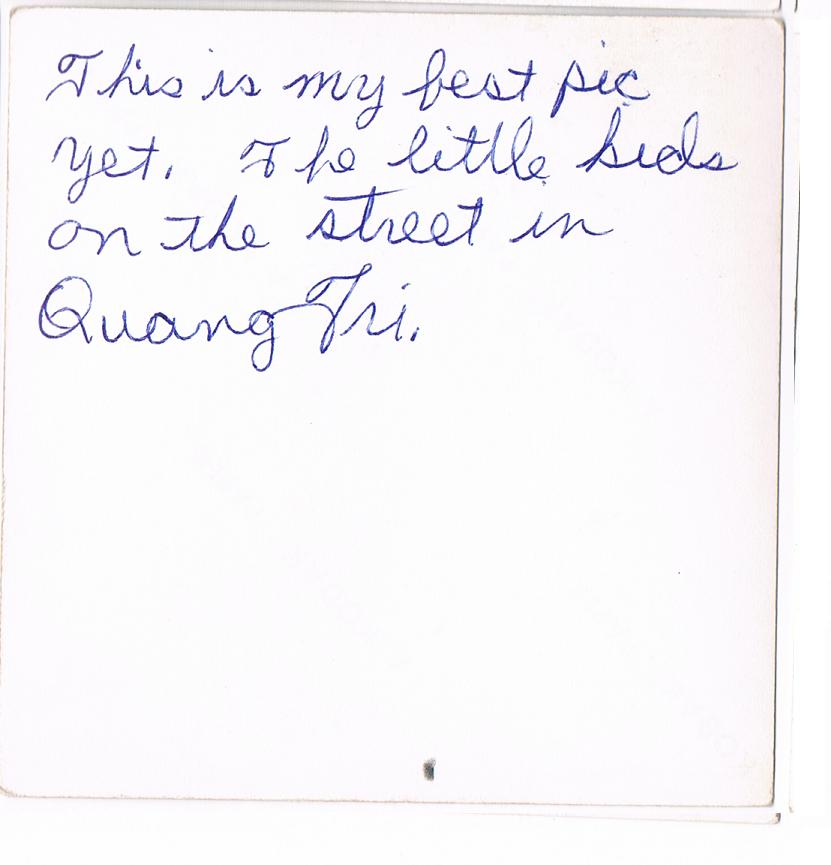 This is my best pic
yet. The little kids
on the street in
Quang Tri.